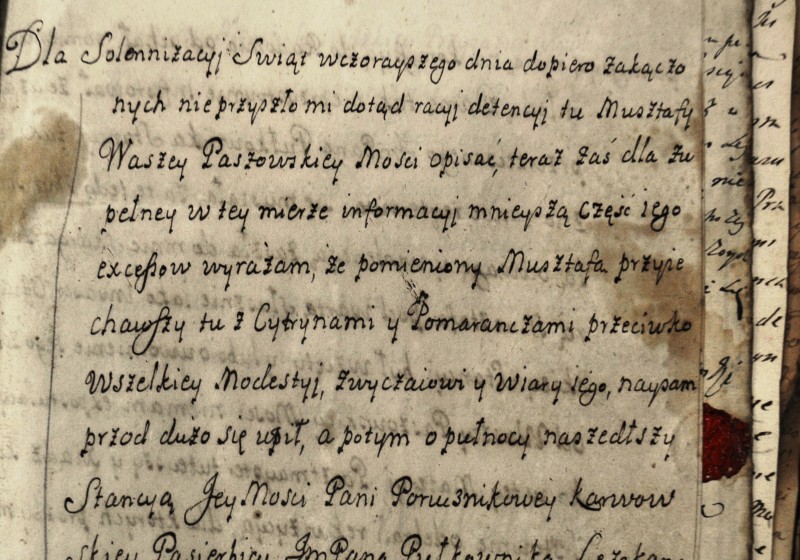 Dla Solennizacyi Swiąt wczorayszego dnia dopiero zakączo
nych nieprzyszło mi dotąd racyi detencyi tu Musztafy
Waszey Paszowskiey Mości opisać, teraz zaś dla zu
pełney w tey mierze informacyi mnieyszą część iego
excessow wyrażam, że pomieniony Musztafa przyie
chawszy tu z Cytrynami y Pomaranczami przeciwko
Wszelkiey Modestyi, zwyczaiowi y Wiary iego, naysam
przod dużo się upił, a potym o pułnocy naszedłszy
Stancyą JeyMości Pani Porucznikowey Karwow
skiey Pasierbicy ImPana Pułkownika